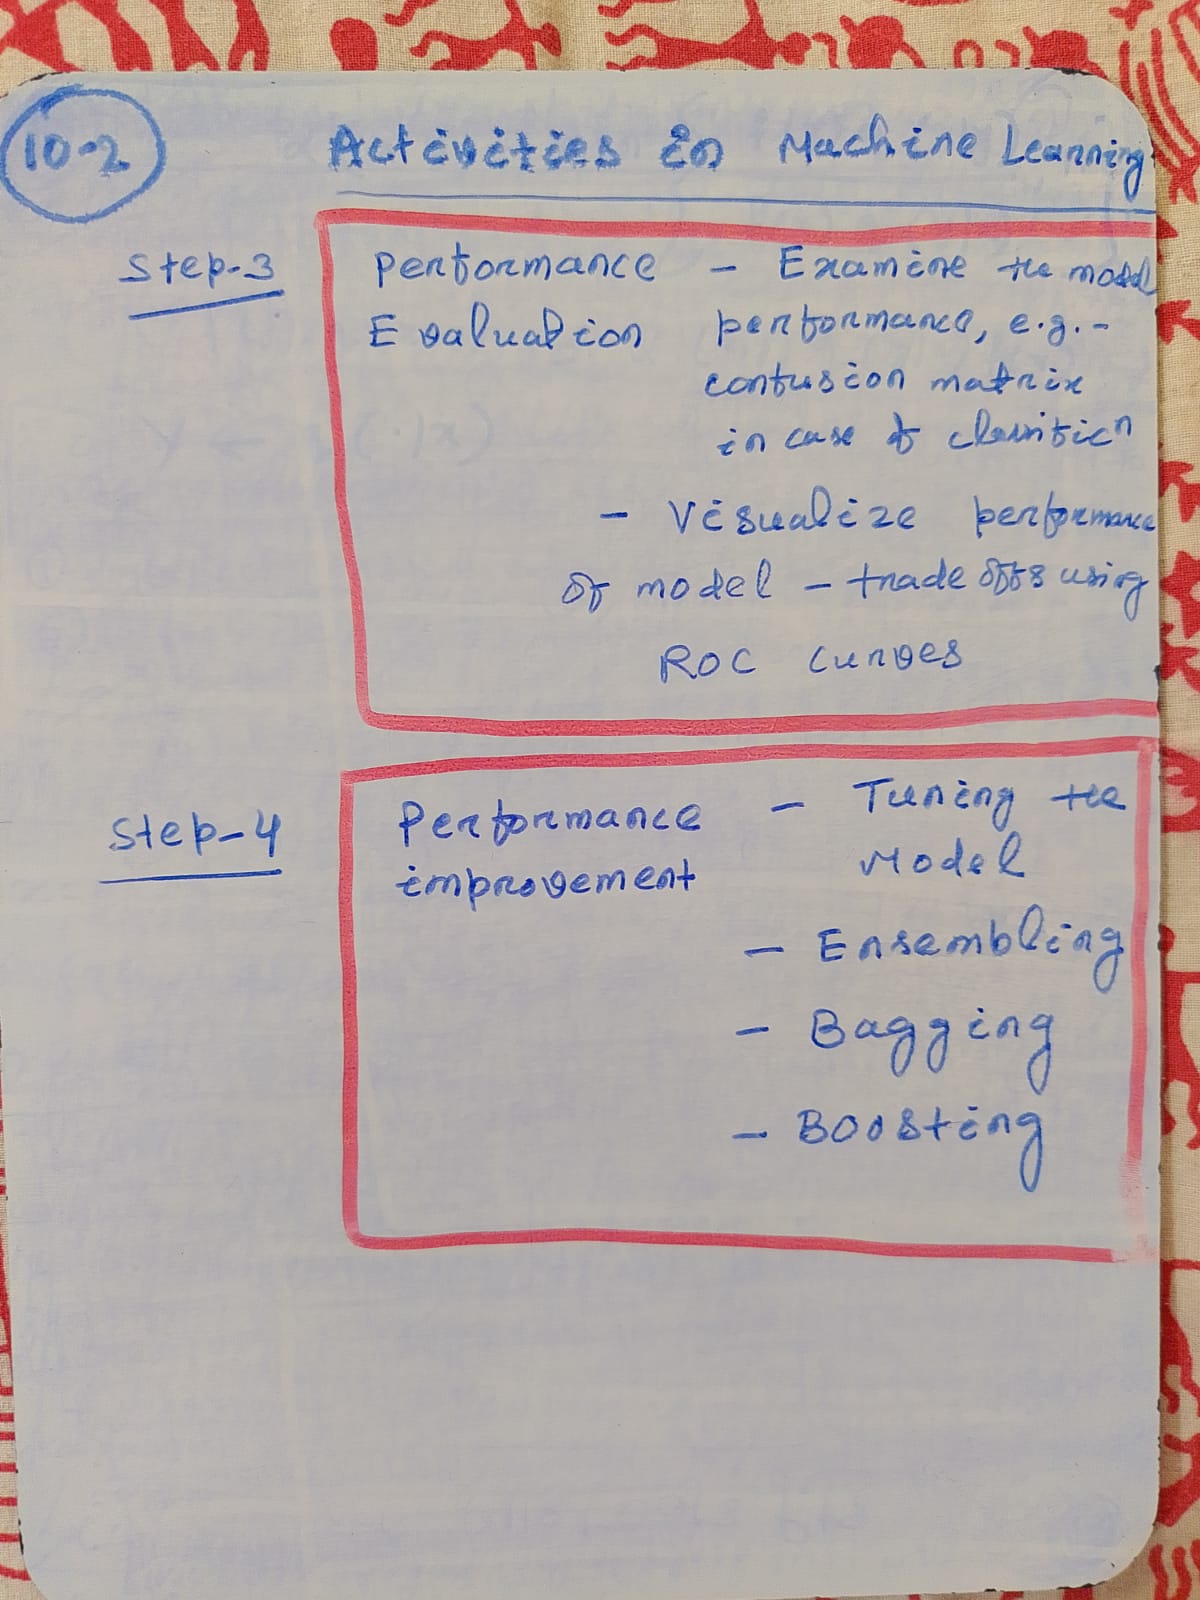 10-2
Activities in Machine Learning
Step-3
Performance - Examine the model
Evaluation performance, e.g.-
confusion matrix
in case of classificn
- Visualize performance
of model - trade offs using
ROC curves
Step-4
Performance - Tuning the
improvement Model
- Ensembling
- Bagging
- Boosting